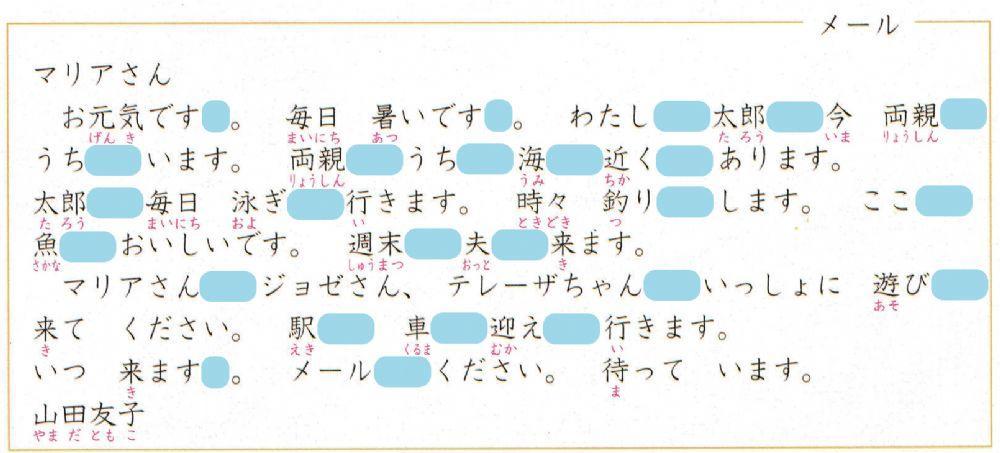 メール
マリアさん
お元気です 。 毎日 暑いです 。 わたし 太郎 今 両親
げんき まいにち あつ たろう いま りょうしん
うち います。 両親 うち 海 近く あります。
りょうしん うみ ちか
太郎 毎日 泳ぎ 行きます。 時々 釣り します。 ここ
たろう まいにち およ い ときどき つ
魚 おいしいです。 週末 夫 来ます。
さかな しゅうまつ おっと き
マリアさん ジョゼさん、 テレーザちゃん いっしょに 遊び
あそ
来て ください。 駅 車 迎え 行きます。
き えき くるま むか い
いつ 来ます 。 メール ください。 待って います。
き ま
山田友子
やまだともこ